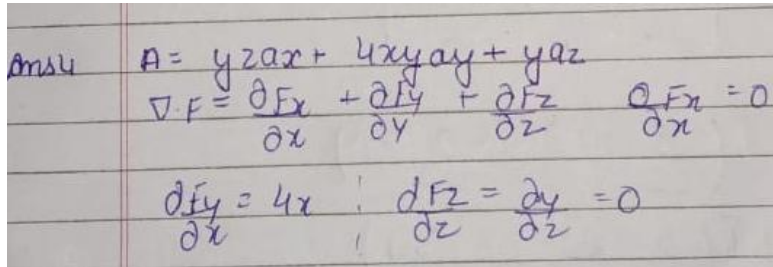 Ans4 A = yzax + 4xyay + yaz
∇.F = ∂Fx/∂x + ∂Fy/∂y + ∂Fz/∂z ∂Fx/∂x = 0
∂Fy/∂x = 4x ; ∂Fz/∂z = ∂y/∂z = 0